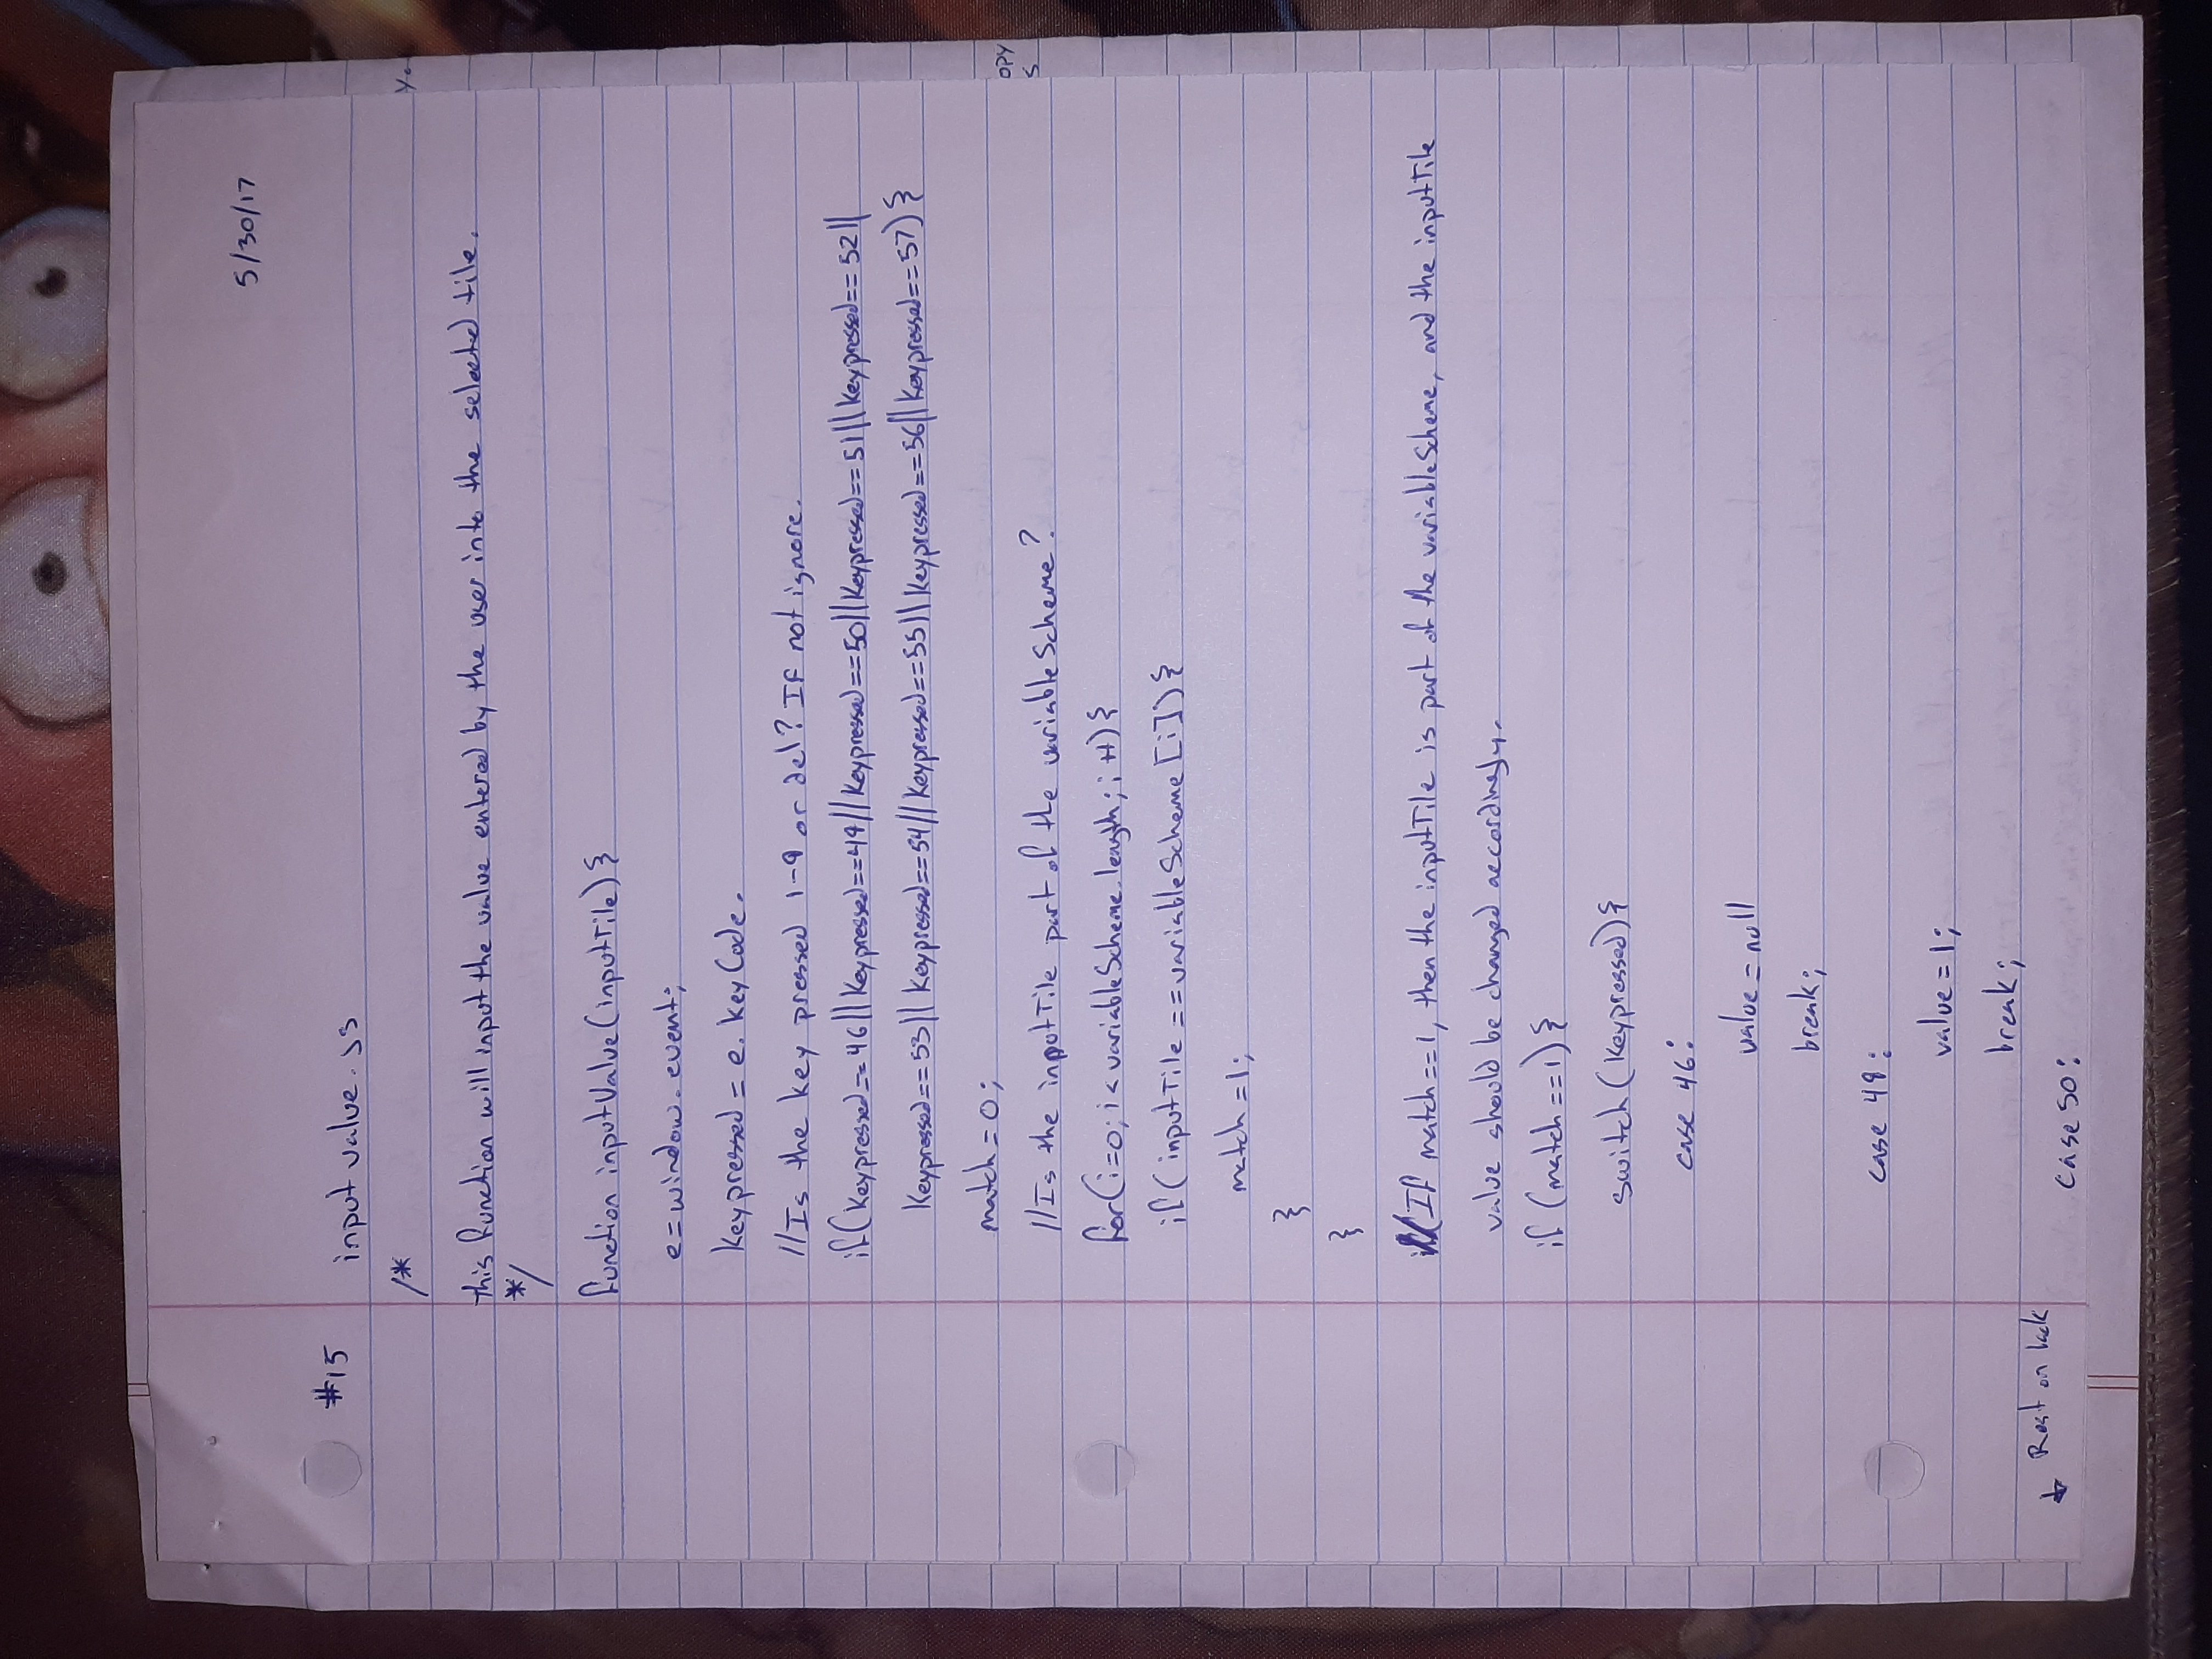 5/30/17
#15 input value.js
/*
This function will input the value entered by the user into the selected tile.
*/
function inputValue(inputTile){
e=window.event;
Keypressed = e.keyCode.
//Is the key pressed 1-9 or del? If not ignore.
if(Keypressed==46||Keypressed==49||Keypressed==50||Keypressed==51||Keypressed==52||
Keypressed==53||Keypressed==54||Keypressed==55||Keypressed==56||Keypressed==57){
match=0;
//Is the inputTile part of the variableScheme?
for(i=0; i<variableScheme.length; i++){
if(inputTile==variableScheme[i]){
match=1;
}
}
//If match==1, then the inputTile is part of the variableScheme, and the inputTile
value should be changed accordingly.
if (match==1){
switch(Keypressed){
case 46:
value=null
break;
case 49:
value=1;
break;
↓ Rest on back
case 50:
OPY
S